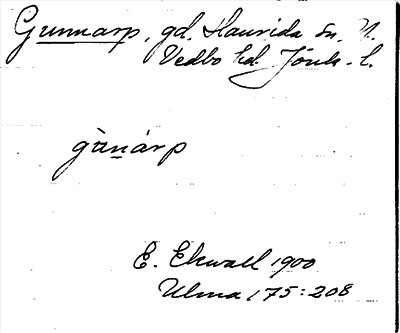 Gunnarp, gd. Haurida sn. N.
Vedbo hd. Jönk. l.
gùnárp
E. Ekwall 1900
Ulma 175:208